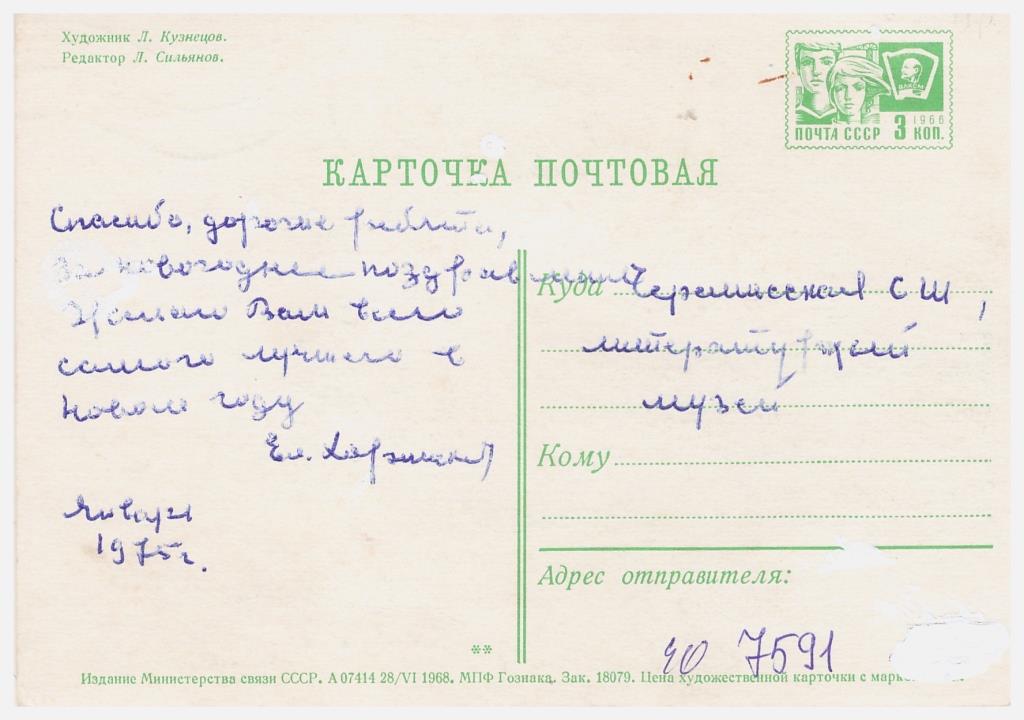 Художник Л. Кузнецов.
Редактор Л. Сильянов.
ВЛКСМ
1966
ПОЧТА СССР 3 КОП.
КАРТОЧКА ПОЧТОВАЯ
Спасибо, дорогие ребята,
за новогоднее поздравление
Желаю Вам всего
самого лучшего в
новом году
Ел.
Января
1975г.
Куда Черемисская СШ,
литературный
музей
Кому
Адрес отправителя:
7591
**
Издание Министерства связи СССР. А 07414 28/VI 1968. МПФ Гознака. Зак. 18079. Цена художественной карточки с